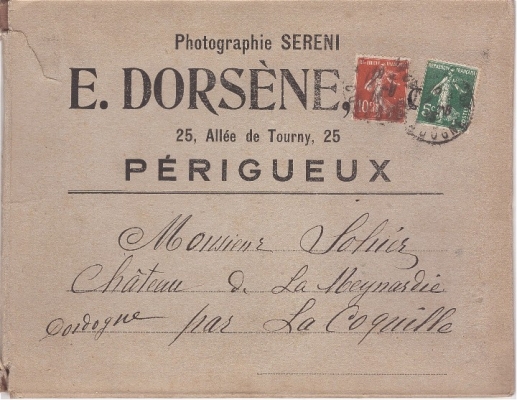 Photographie SERENI
E. DORSÈNE,
25, Allée de Tourny, 25
PÉRIGUEUX
Monsieur
Château de La Meynardie
Dordogne par La Coquille